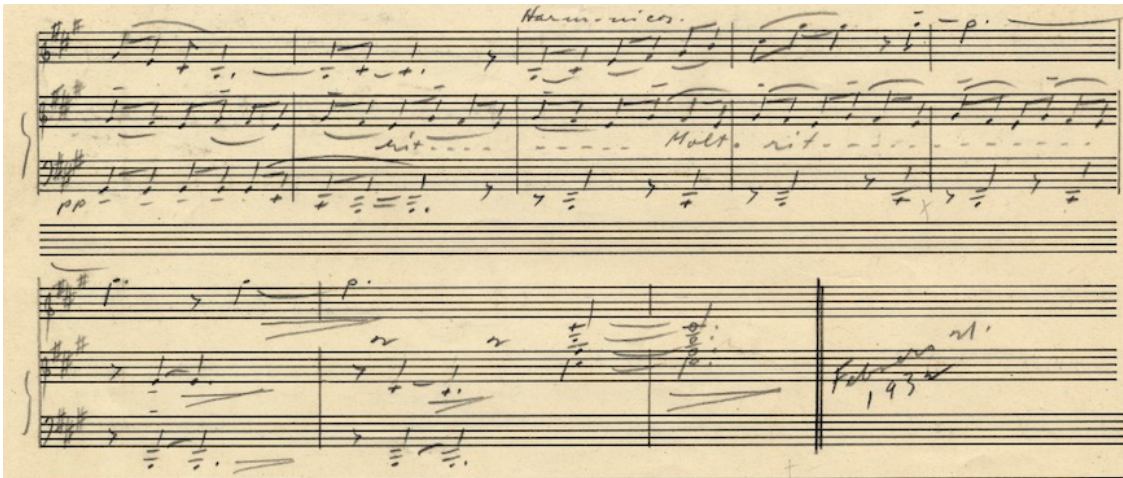 Harmonicos.
rit
Molt. rit
pp
1932